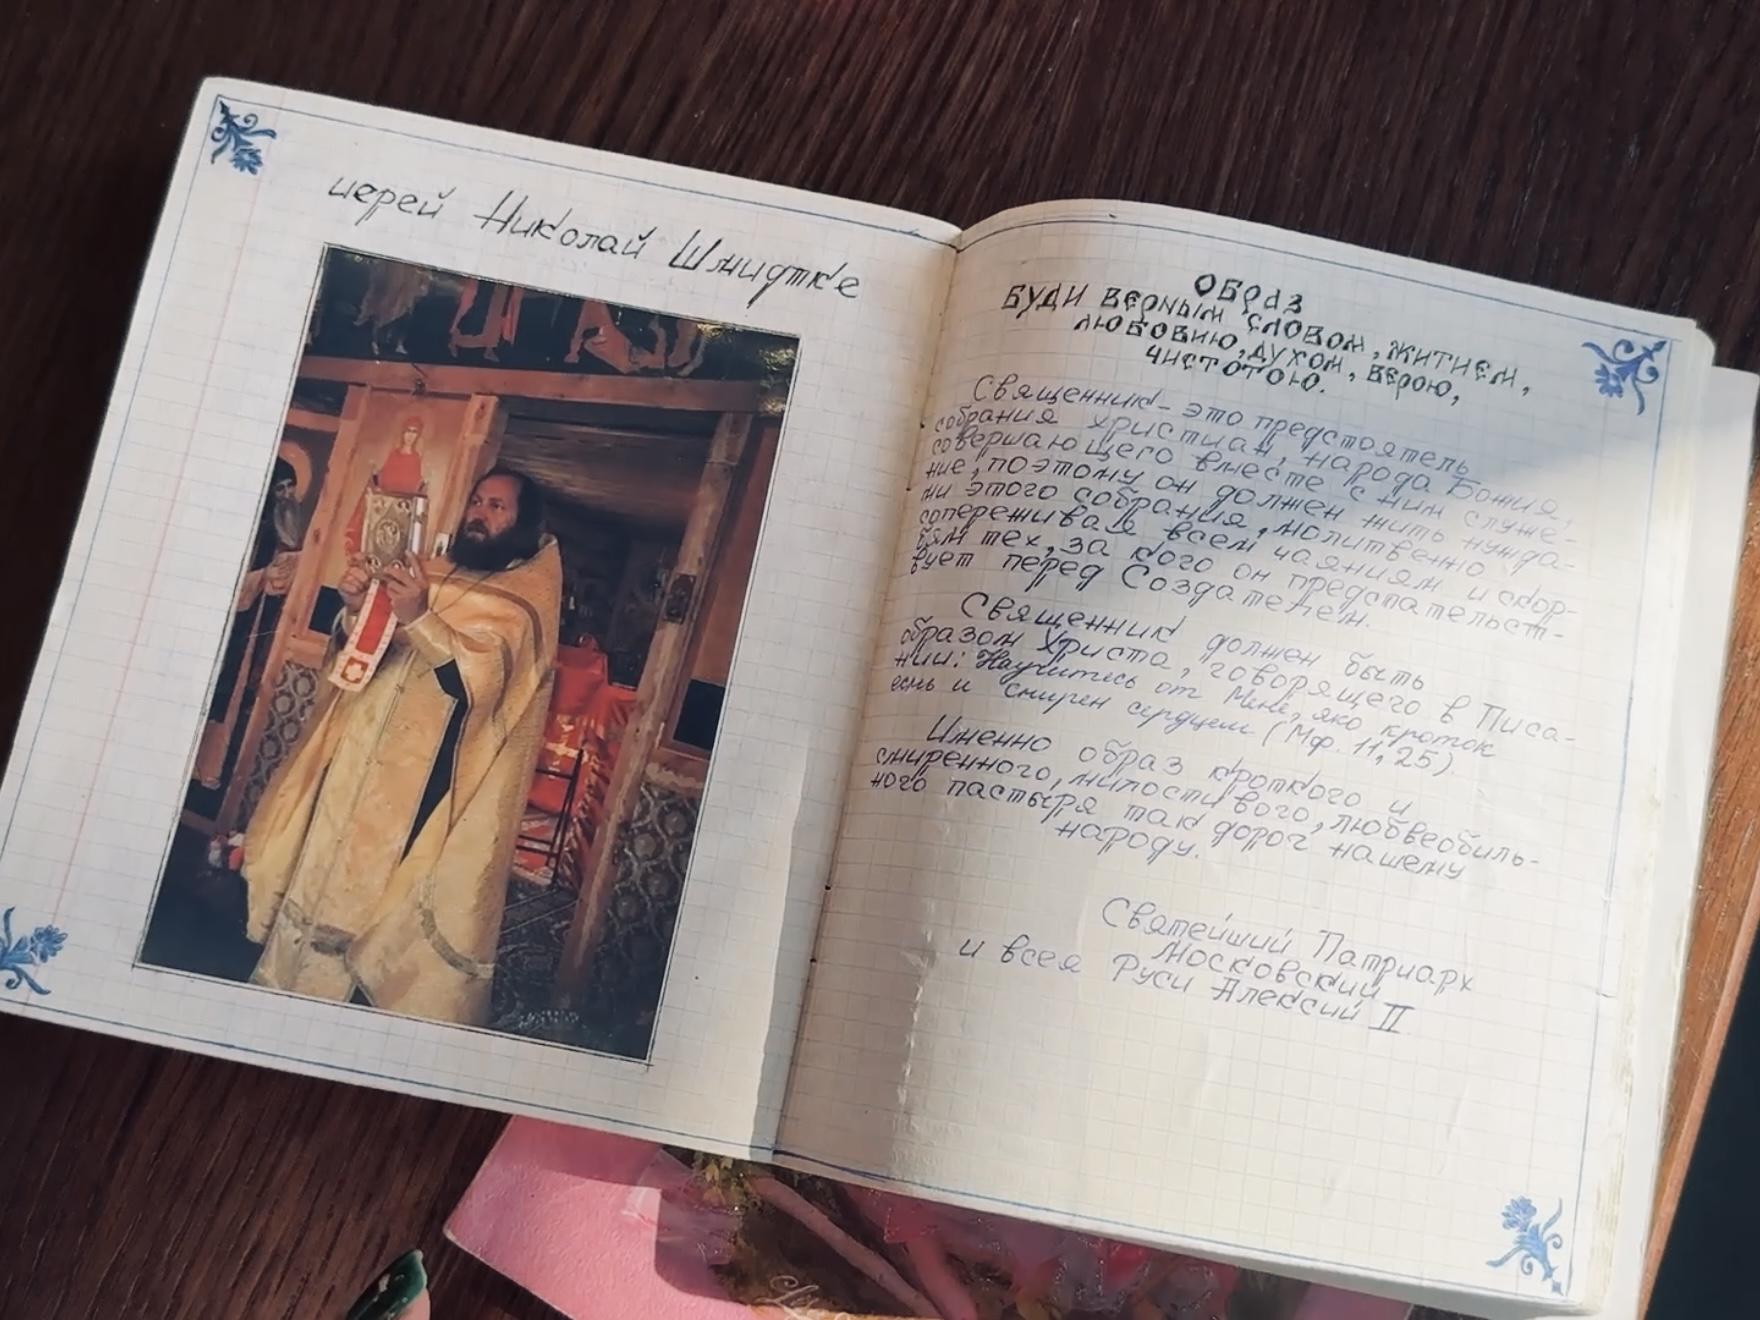 иерей Николай Шмидтке
ОБРАЗ
БУДИ ВЕРНЫМ СЛОВОМ, ЖИТИЕМ,
ЛЮБОВИЮ, ДУХОМ, ВЕРОЮ,
ЧИСТОТОЮ.
Священник - это предстоятель
собрания христиан, народа Божия,
совершающего вместе с ним служе-
ние, поэтому он должен жить нужда-
ми этого собрания, молитвенно
сопереживая всем чаяниям и скор-
бям тех, за кого он предстательст-
вует перед Создателем.
Священник должен быть
образом Христа, говорящего в Писа-
нии: Научитесь от Мене, яко кроток
есмь и смирен сердцем (Мф. 11, 25).
Именно образ кроткого и
смиренного, милостивого, любвеобиль-
ного пастыря так дорог нашему
народу.
Святейший Патриарх
Московский
и всея Руси Алексий II